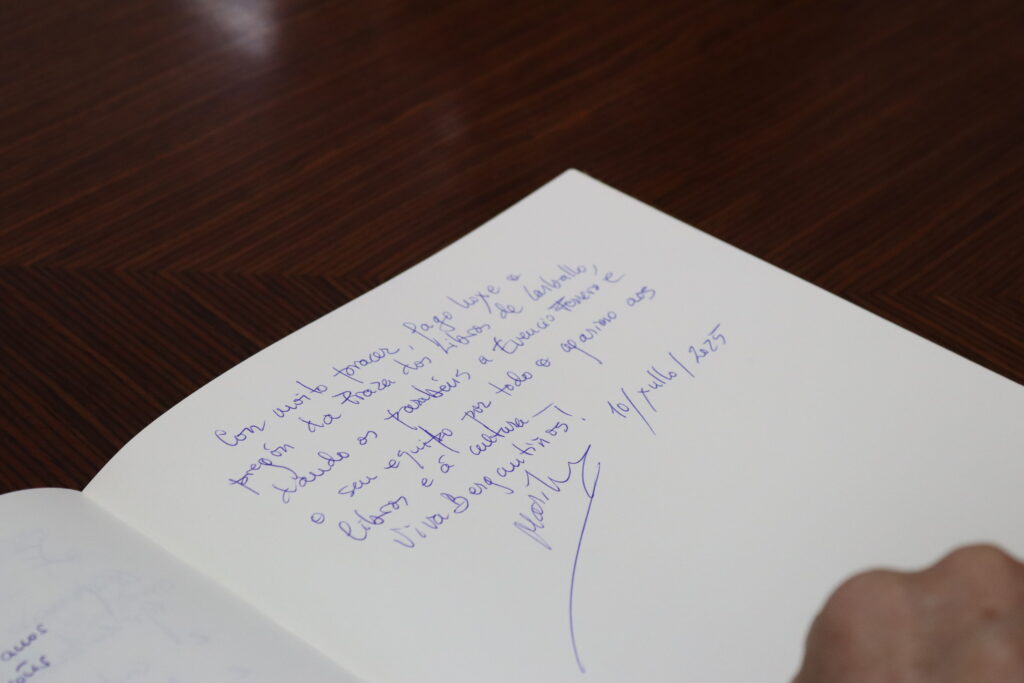 Con moito pracer, fago hoxe o
pregón da Praza dos Libros de Carballo,
dando os parabéns a Evencio Ferrero e
o seu equipo por todo o agarimo aos
libros e á cultura
Viva Bergantiños!
10/xullo/2025
anos